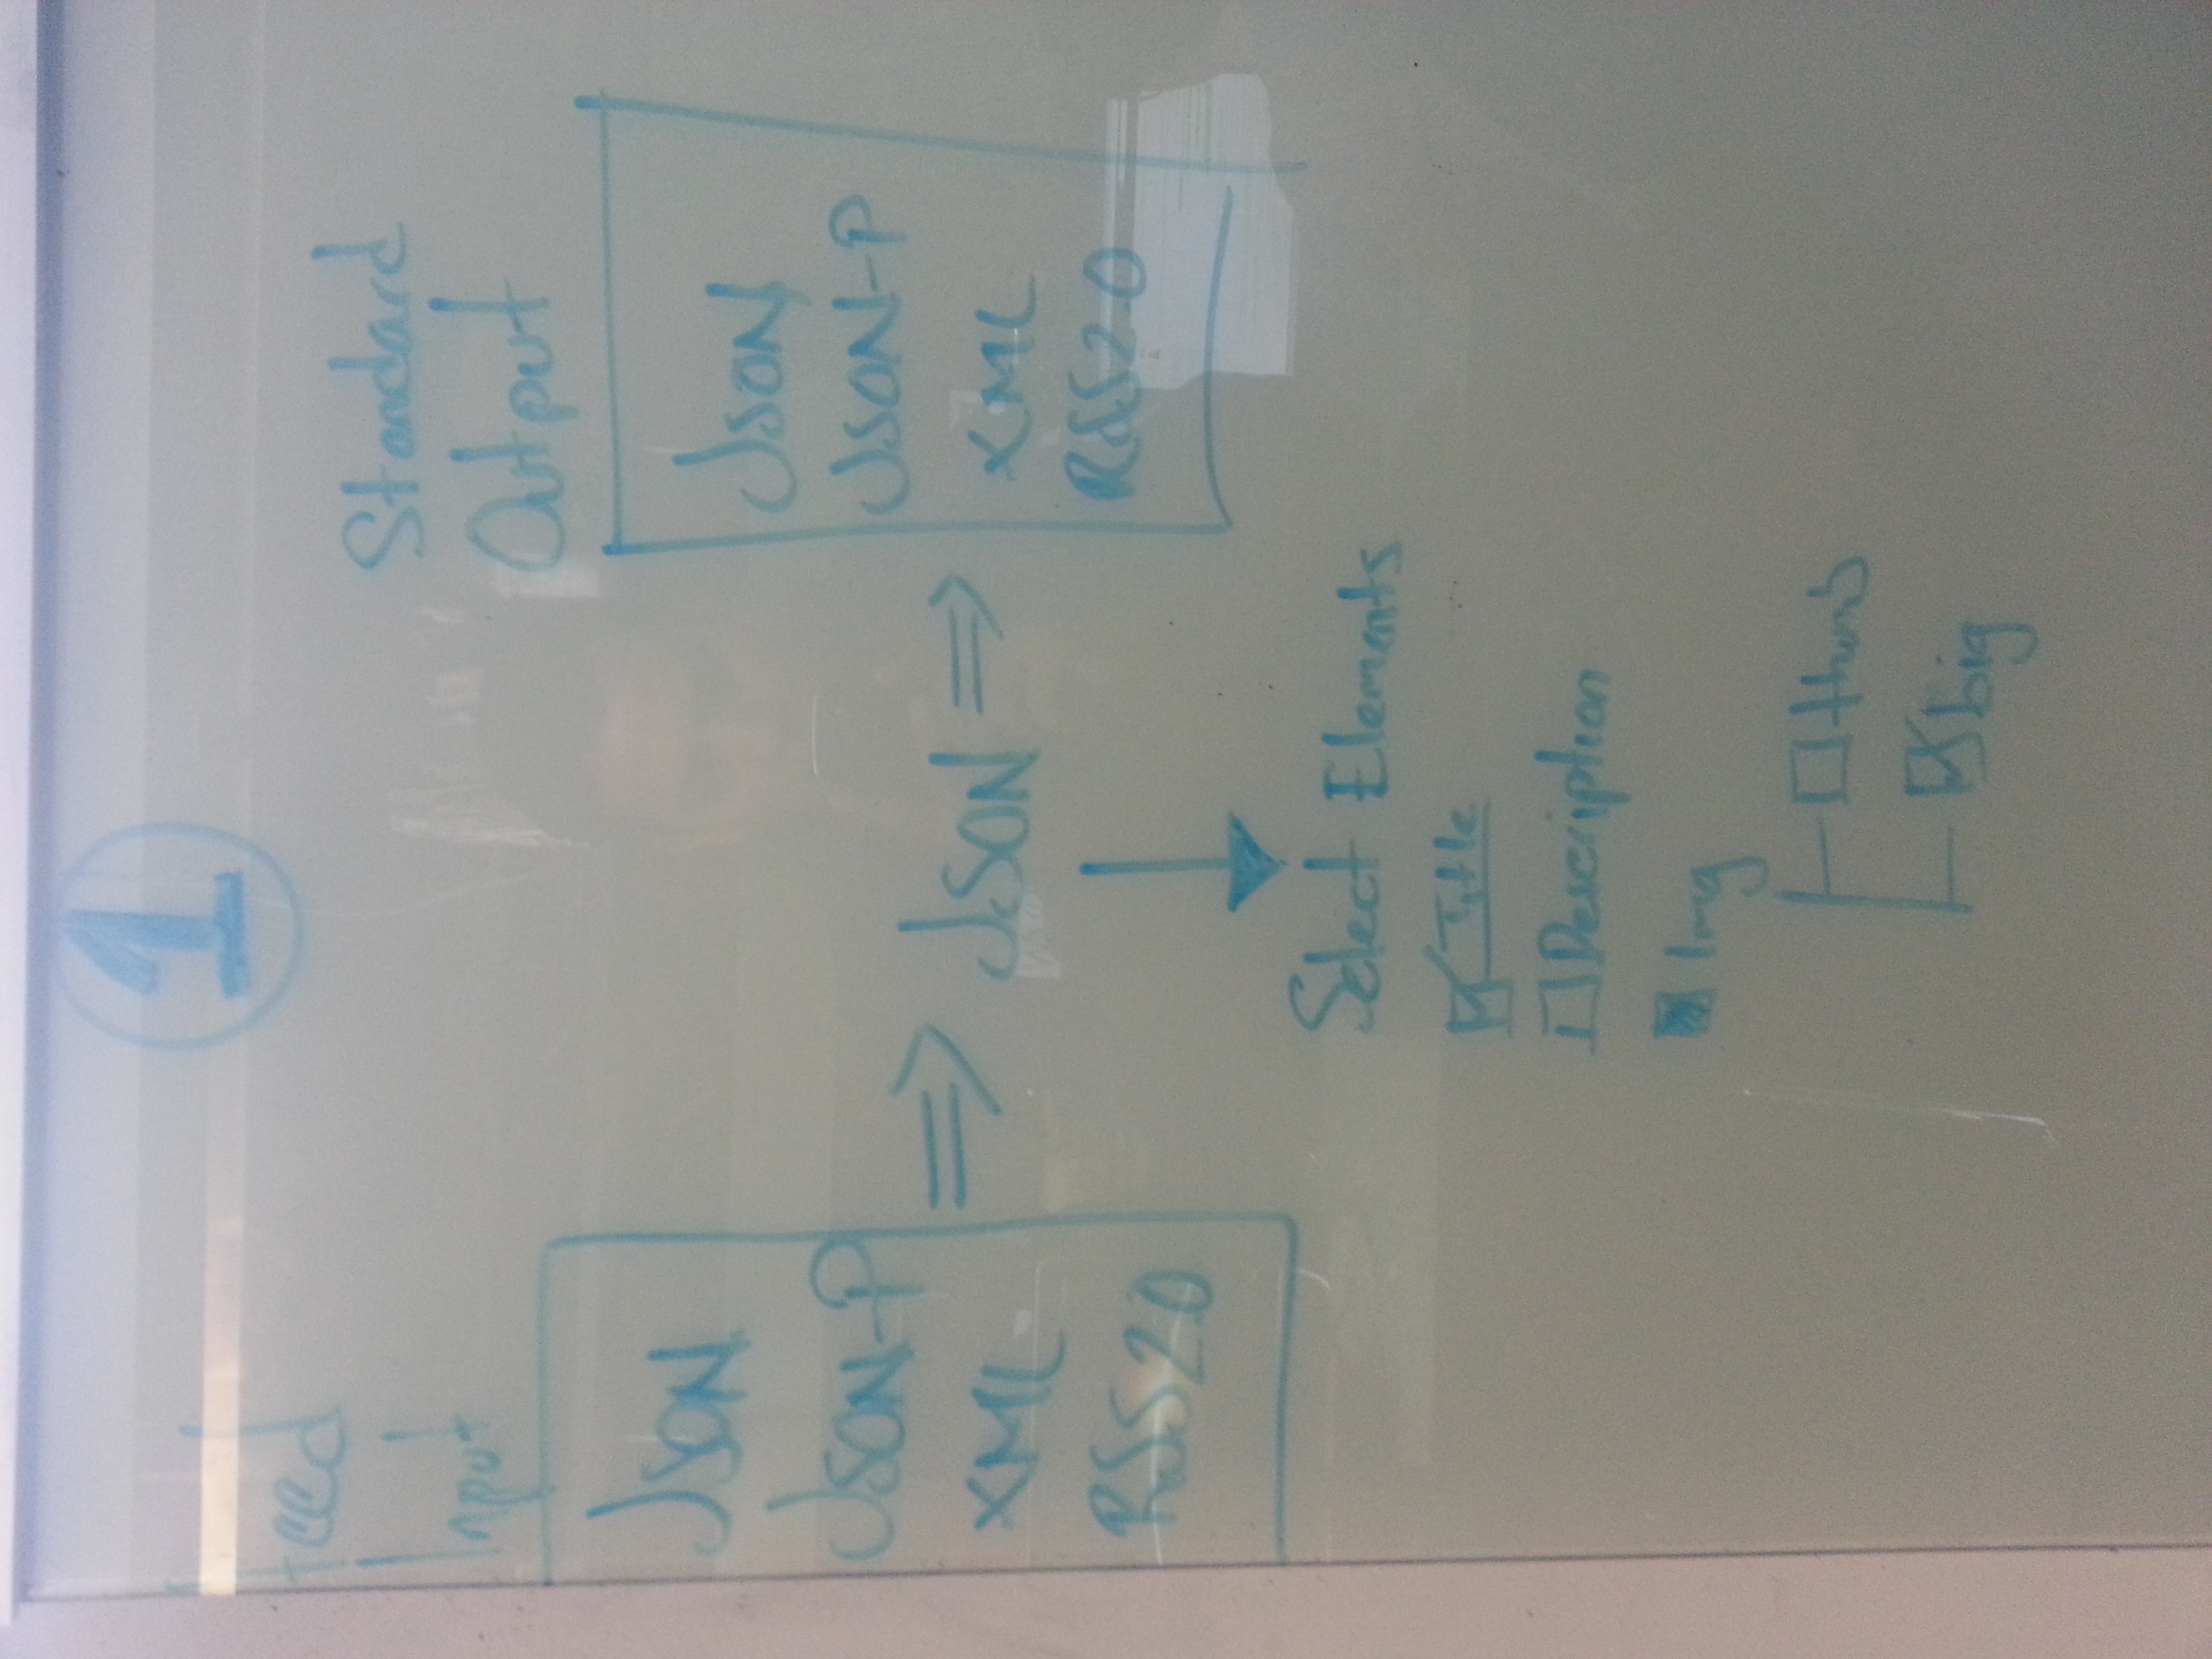 1
feed
Input
JSON
JSON-P
XML
RSS2.0
JSON
Standard
Output
JSON
JSON-P
XML
RSS2.0
Select Elements
Title
Description
Img
thumb
big